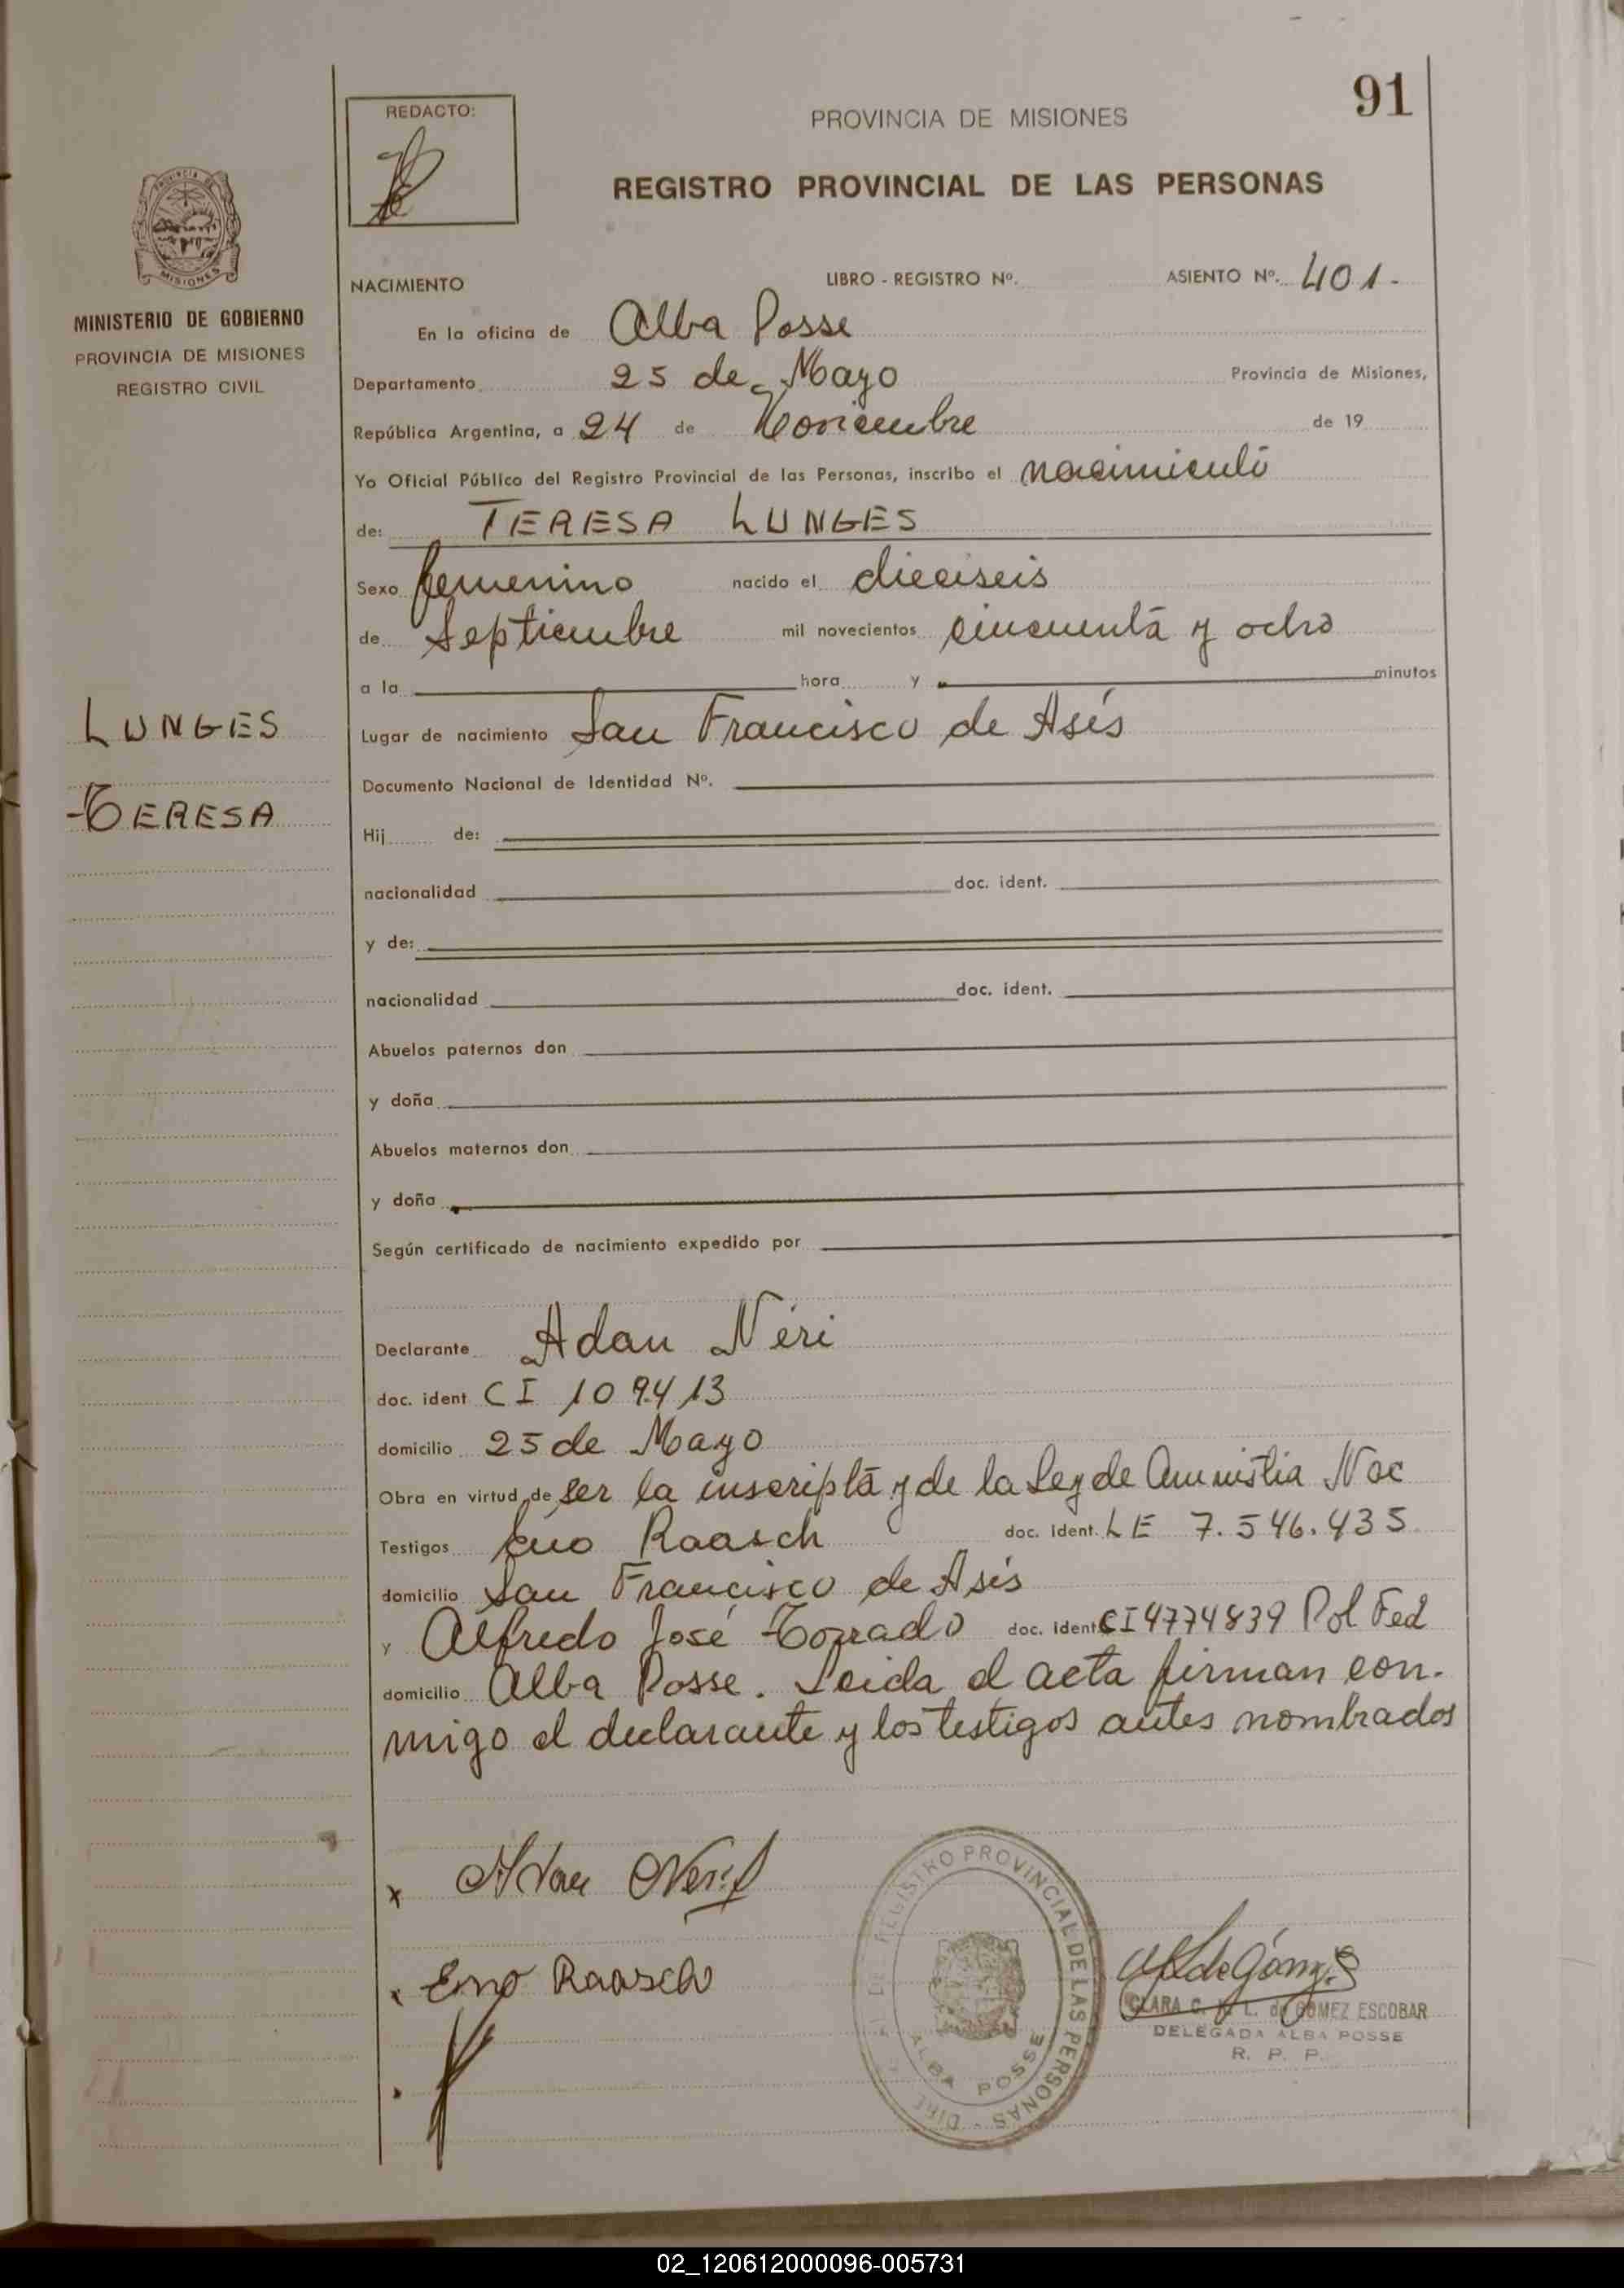 91
REDACTO:
PROVINCIA DE MISIONES
REGISTRO PROVINCIAL DE LAS PERSONAS
MISIONES
MINISTERIO DE GOBIERNO
PROVINCIA DE MISIONES
REGISTRO CIVIL
NACIMIENTO LIBRO - REGISTRO Nº. ASIENTO Nº. 401.-
En la oficina de Alba Posse
Departamento 25 de Mayo Provincia de Misiones,
República Argentina, a 24 de Noviembre de 19
Yo Oficial Público del Registro Provincial de las Personas, inscribo el nacimiento
de: TERESA LUNGES
Sexo femenino nacido el dieciseis
de Septiembre mil novecientos cincuenta y ocho
a la hora y minutos
LUNGES
TERESA
Lugar de nacimiento San Francisco de Asís
Documento Nacional de Identidad Nº.
Hij de:
nacionalidad doc. ident.
y de:
nacionalidad doc. ident.
Abuelos paternos don
y doña
Abuelos maternos don
y doña
Según certificado de nacimiento expedido por
Declarante Adan Neri
doc. ident CI 109413
domicilio 25 de Mayo
Obra en virtud de ser la inscripta y de la Ley de Amnistia Nac
Testigos Raasch doc. Ident. LE 7.546.435
domicilio San Francisco de Asís
y Alfredo José doc. ident CI 4774839 Pol Fed
domicilio Alba Posse. Leida el acta firman con-
migo el declarante y los testigos antes nombrados
Adan Neri
Erno Raasch
REGISTRO PROVINCIAL DE LAS PERSONAS
ALBA POSSE
de GOMEZ ESCOBAR
DELEGADA ALBA POSSE
R. P. P.
02_120612000096-005731